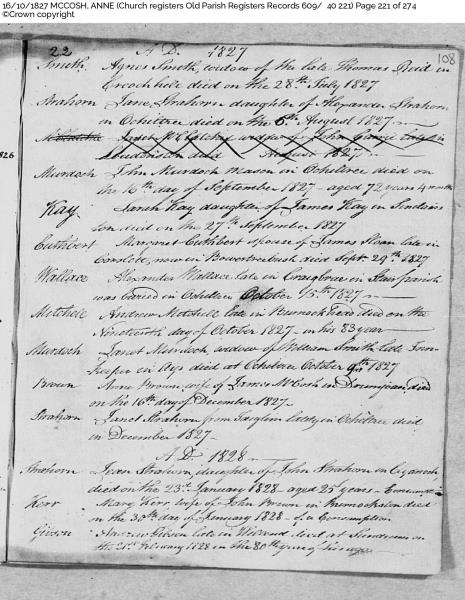 16/10/1827 MCCOSH, ANNE (Church registers Old Parish Registers Records 609/ 40 221) Page 221 of 274
©Crown copyright
22 A.D. 1827 108
Smith. Agnes Smith, widow of the late Thomas Reid in
died on the 28th July 1827
Strahorn Jane Strahorn daughter of Alexander Strahorn
in Ochiltree died on the 6th August 1827
widow of John
died August 1827
826
Murdoch John Murdoch Mason in Ochiltree died on
the 16th day of September 1827 - aged 72 years 4 months
Kay Sarah Kay daughter of James Kay in
died on the 27th September 1827
Cuthbert Margaret Cuthbert spouse of James Sloan late in
now in died Sept. 29th 1827
Wallace Alexander Wallace late in in Stair parish
was buried in Ochiltree October 15th 1827
Mitchell Andrew Mitchell late in died on the
Nineteenth day of October 1827 - in his 83 year
Murdoch Janet Murdoch widow of William Smith late Inn
keeper in Ayr died at Ochiltree October 9th 1827
Brown Anne Brown, wife of James McCosh in died
on the 16th day of December 1827 -
Strahorn Janet Strahorn from in Ochiltree died
in December 1827 -
A.D. 1828 -
Strahorn Jean Strahorn, daughter of John Strahorn in
died on the 23rd January 1828 - aged 25 years -
Kerr Mary Kerr wife of John Brown in died
on the 30th day of January 1828 - of a Consumption
Gibson Andrew Gibson late in died at on
the 21st February 1828 in the 80th year of his age